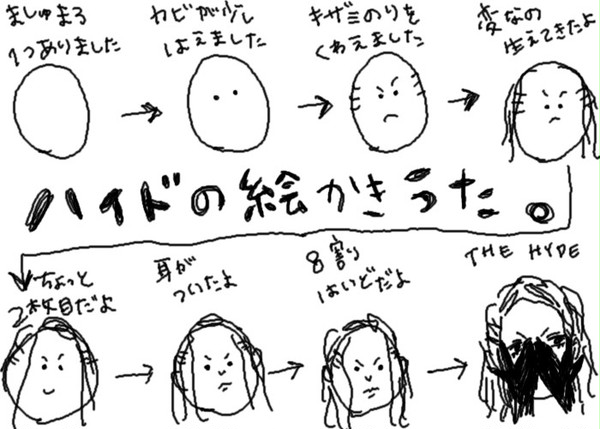 ましゅまろ
1つありました
カビが少し
はえました
キザミのりを
くわえました
変なの
生えてきたよ
ハイドの絵かきうた。
ちょっと
2枚目だよ
耳が
ついたよ
8割
はいどだよ
THE HYDE